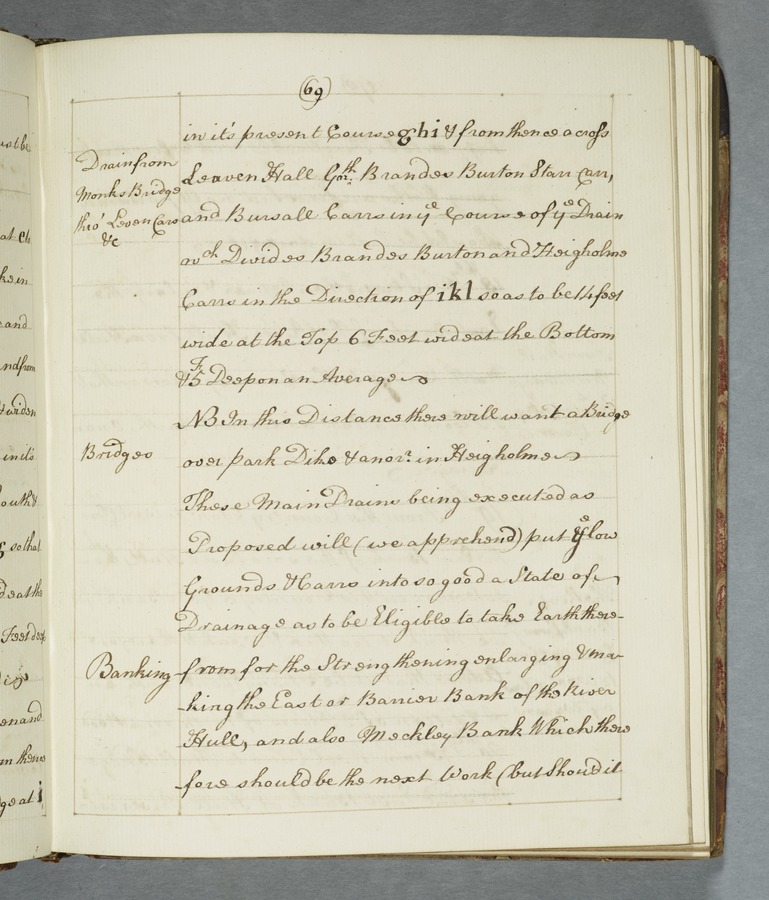 (69)
in it's present Course ghi & from thence across
Drain from
Monks Bridge
thro' Leven Carrs
&c
Leaven Hall Gar.th Brandes Burton Starr Carr,
and Bursall Carrs in ye Course of ye Drain
wch Divides Brandes Burton and Heigholme
Carrs in the Direction of ikl so as to be 14 feet
wide at the Top 6 Feet wide at the Bottom
& 5 F. Deep on an Average
NB In this Distance there will want a Bridge
Bridges
over park Dike & anor. in Heigholme
These Main Drains being executed as
Proposed will (we apprehend) put ye low
Grounds & Carrs into so good a State of
Drainage as to be Eligible to take Earth there-
Banking
from for the Strengthening enlarging & ma-
-king the East or Barrier Bank of the River
Hull, and also Meckley Bank Which there
fore should be the next Work (but Should it
ust be
at
ke in
and
and from
& widen
in it's
outh &
g so that
d eat the
Feet deep
en and
m thence
ge at i